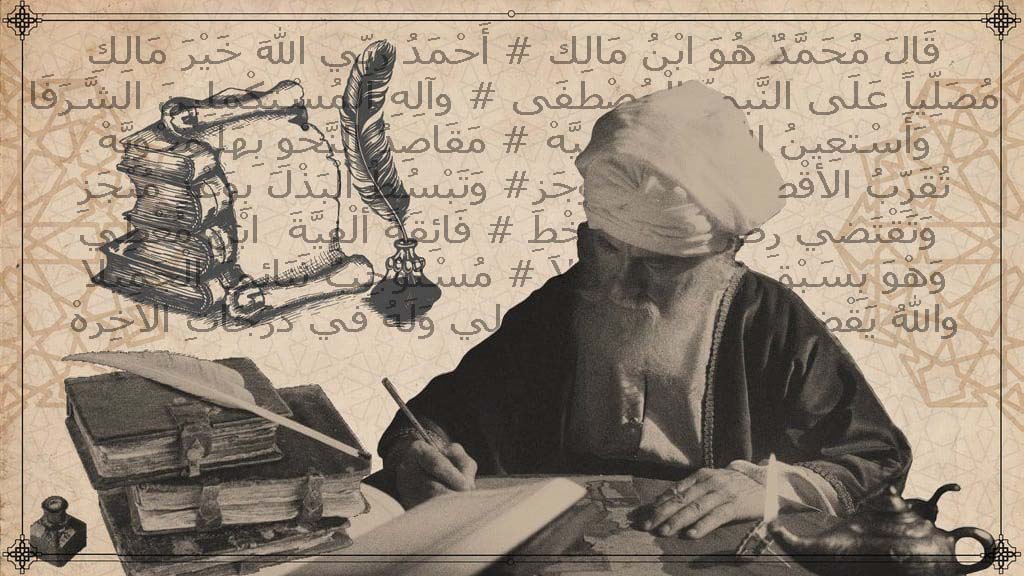 قَالَ مُحَمَّدٌ هُوَ ابْنُ مَالِك # أَحْمَدُ رَبِّي اللَّهَ خَيْرَ مَالِك
مُصَلِّياً عَلَى النَّبِيِّ الْمُصْطَفَى # وَآلِهِ المُسْتَكْمِلِينَ الشَّرَفَا
وَأَسْتَعِينُ # مَقَاصِدُ النَّحْوِ بِهَا مَحْوِيَّهْ
تُقَرِّبُ # وَتَبْسُطُ الْبَذْلَ مُنْجَزِ
وَتَقْتَضي # فَائِقَةً أَلْفِيَّةَ
وَهْوَ بِسَبْقٍ # الْجَمِيلا
واللَّهُ لِي وَلَهُ في دَرَجَاتِ الآخِرَهْ